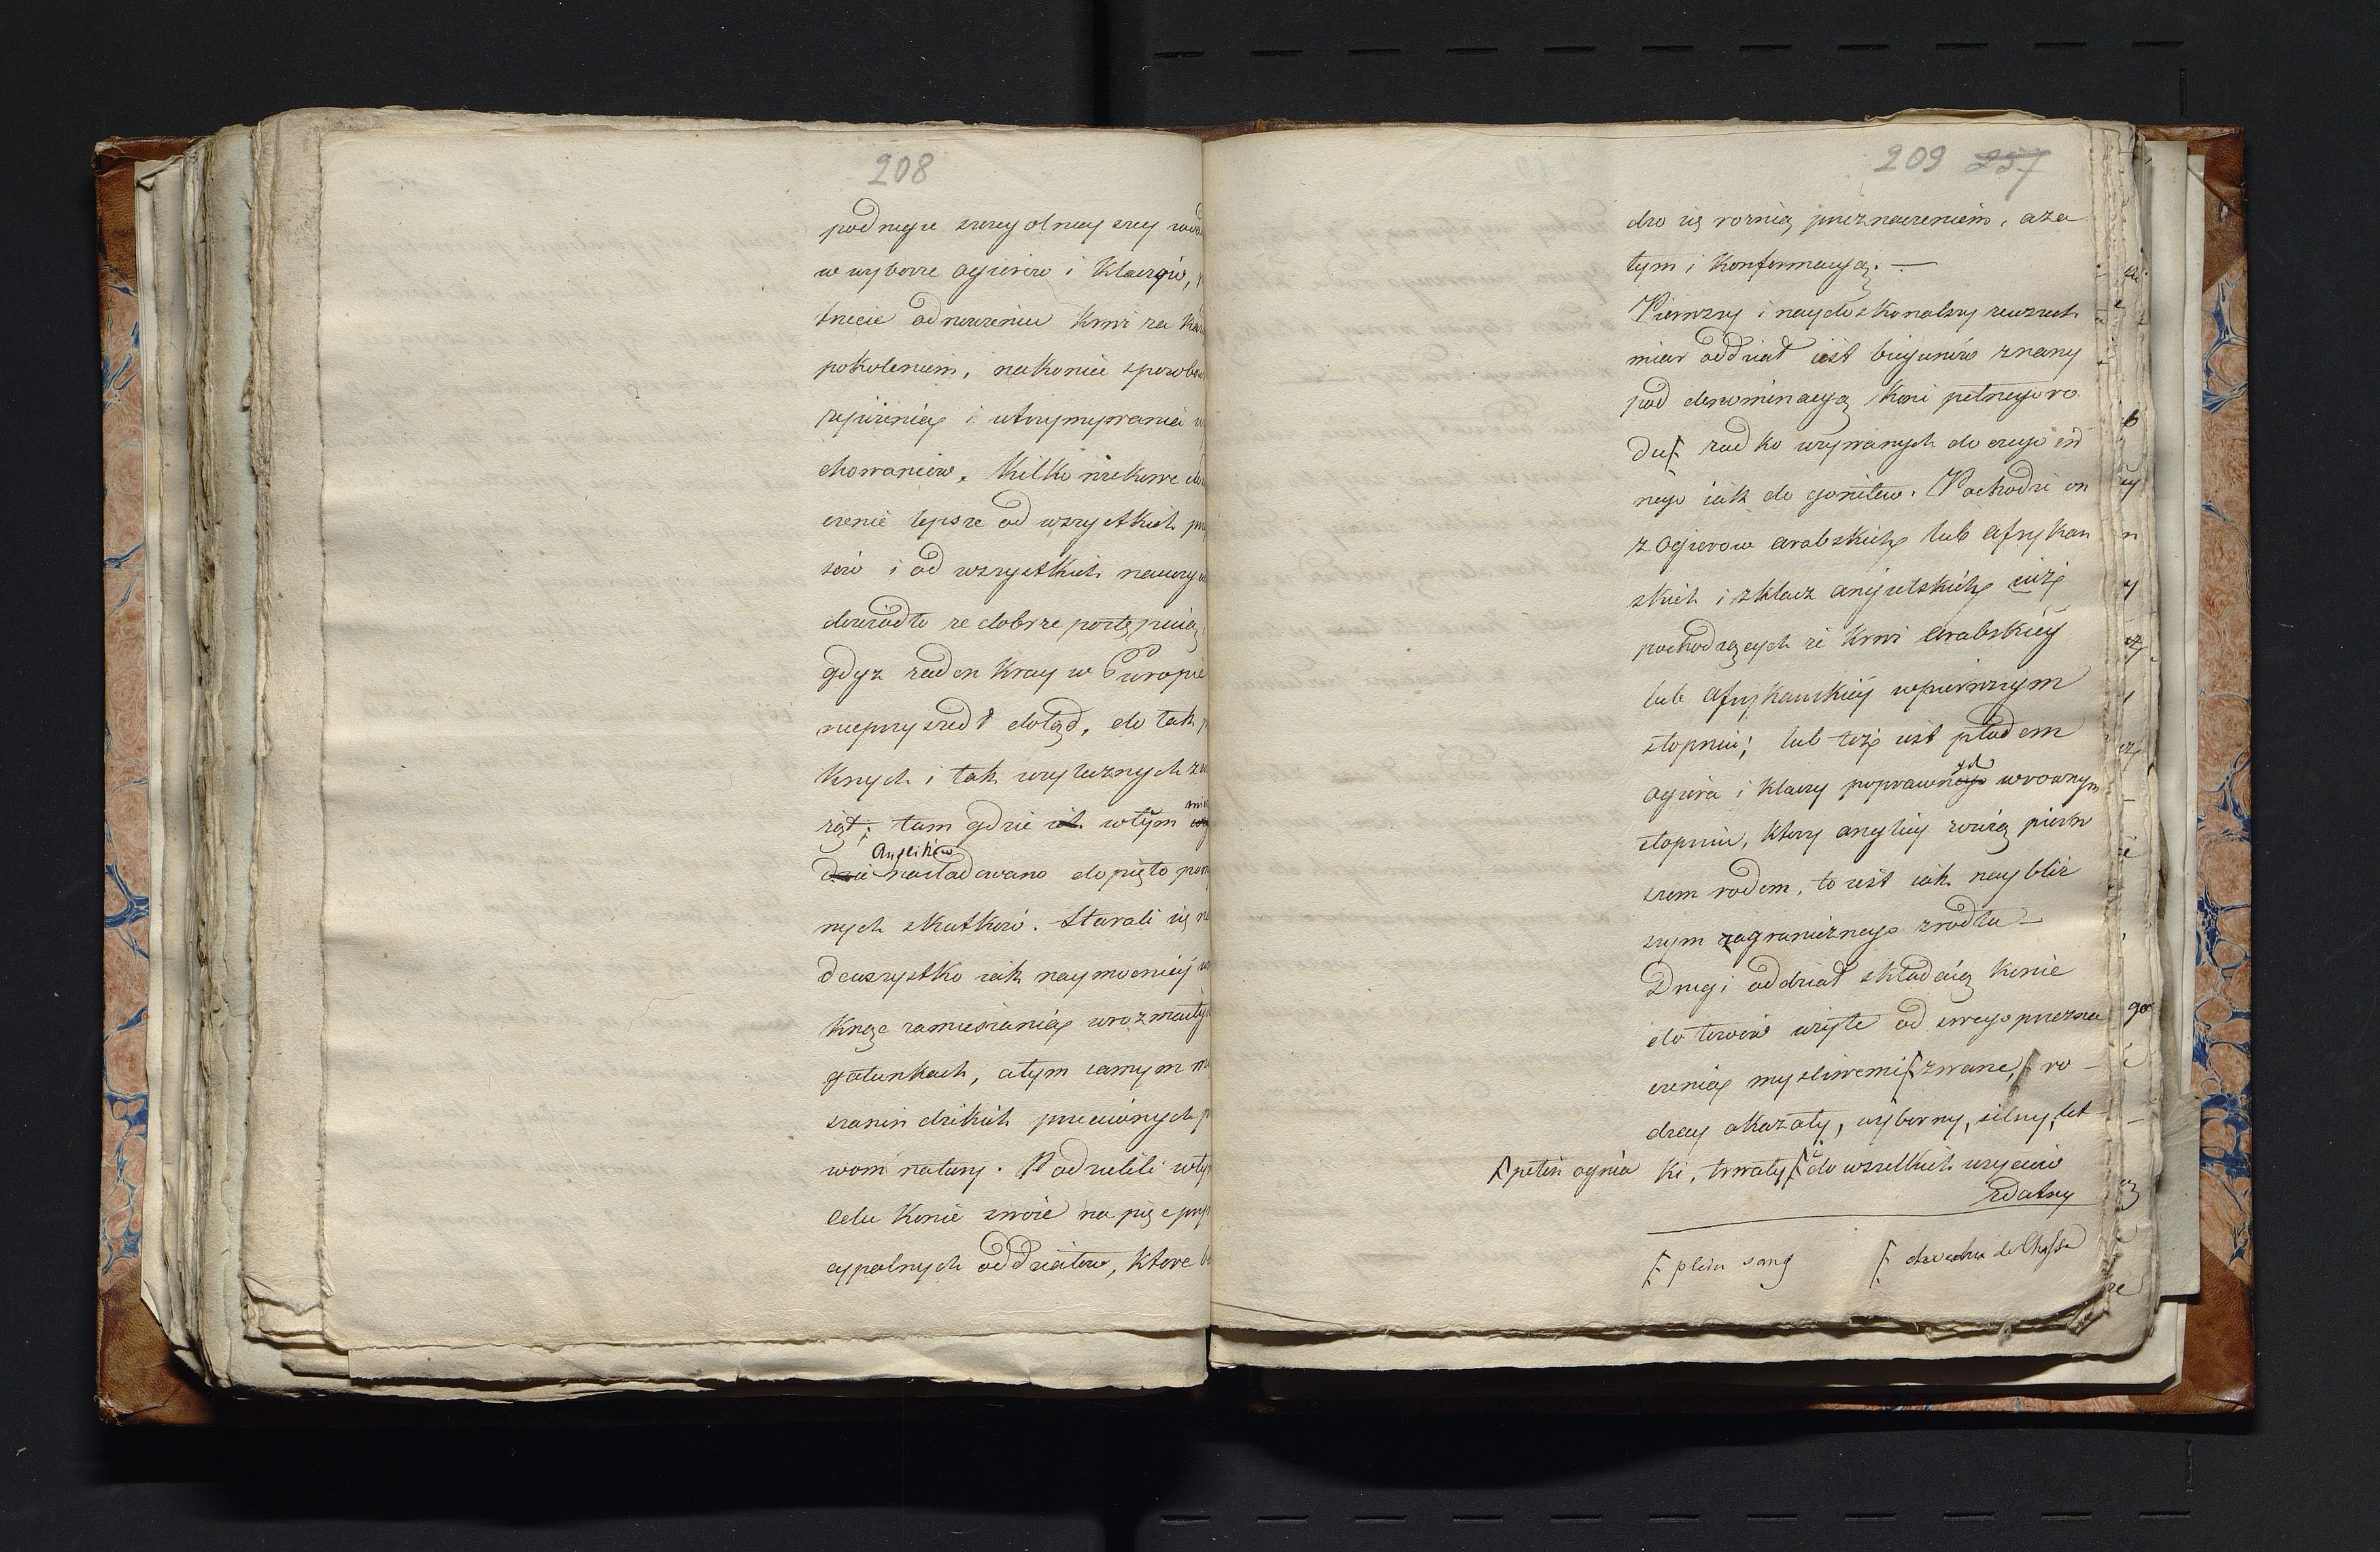 208
podrugie szczegolnieyszey
w wyborze ogierow i klaczów,
trzecie odnowieniu krwi za
pokoleniem, nakoniec sposobow
zejścienia i utrzymywania
chowanców. Kilko wiekowe
czenie lepsze od wszystkich
sów i od wszystkich
dowiodło ze dobrze postępuią,
gdyz zaden kray w Europie
nieprzyszedł dotąd, do tak
knych i tak uzytecznych
rząt; tam gdzie ich wtym
Anglików
dzie nasladowano dopięto
nych skutków. Starali się
dewszystko iak naymocniéy
knąc zamieszania w rozmaitych
gatunkach, atym samym
szanin dzikich przeciwnych
wom natury. Podzielili wtym
celu Konie swoie na pięc
cypalnych oddziałow, ktore
209 257
dzo się roznią przeznaczeniem, aza
tym i Konformacyą. —
Pierwszy i naydoskonalszy zewszech
miar oddział iest biegunów znany
pod denominacyą Koni pełnego ro
du rzadko uzywanych do czego in
nego iak do gonitew. Pochodzi on
z ogierow arabskich lub afrykan
skich i zklacz angielskich iuż
pochodzących ze krwi arabskiéy
lub afrykanskiéy wpierwszym
stopniu; lub też iest płodem
ogiera i klaczy poprawnego wrownym
stopniu, ktory anglicy zowią pierw
szem rodem, to iest iak naybliz
szym zagranicznego zrodła —
Drugi oddział składaią konie
do łowów użyte od swego przezna
czenia mysliwemi zwane, ro
dzay okazały, wyborny, silny, let
pełen ognia ki, trwały do wszelkich uzyciow
zdatny
plein sang chevaux de Chasse